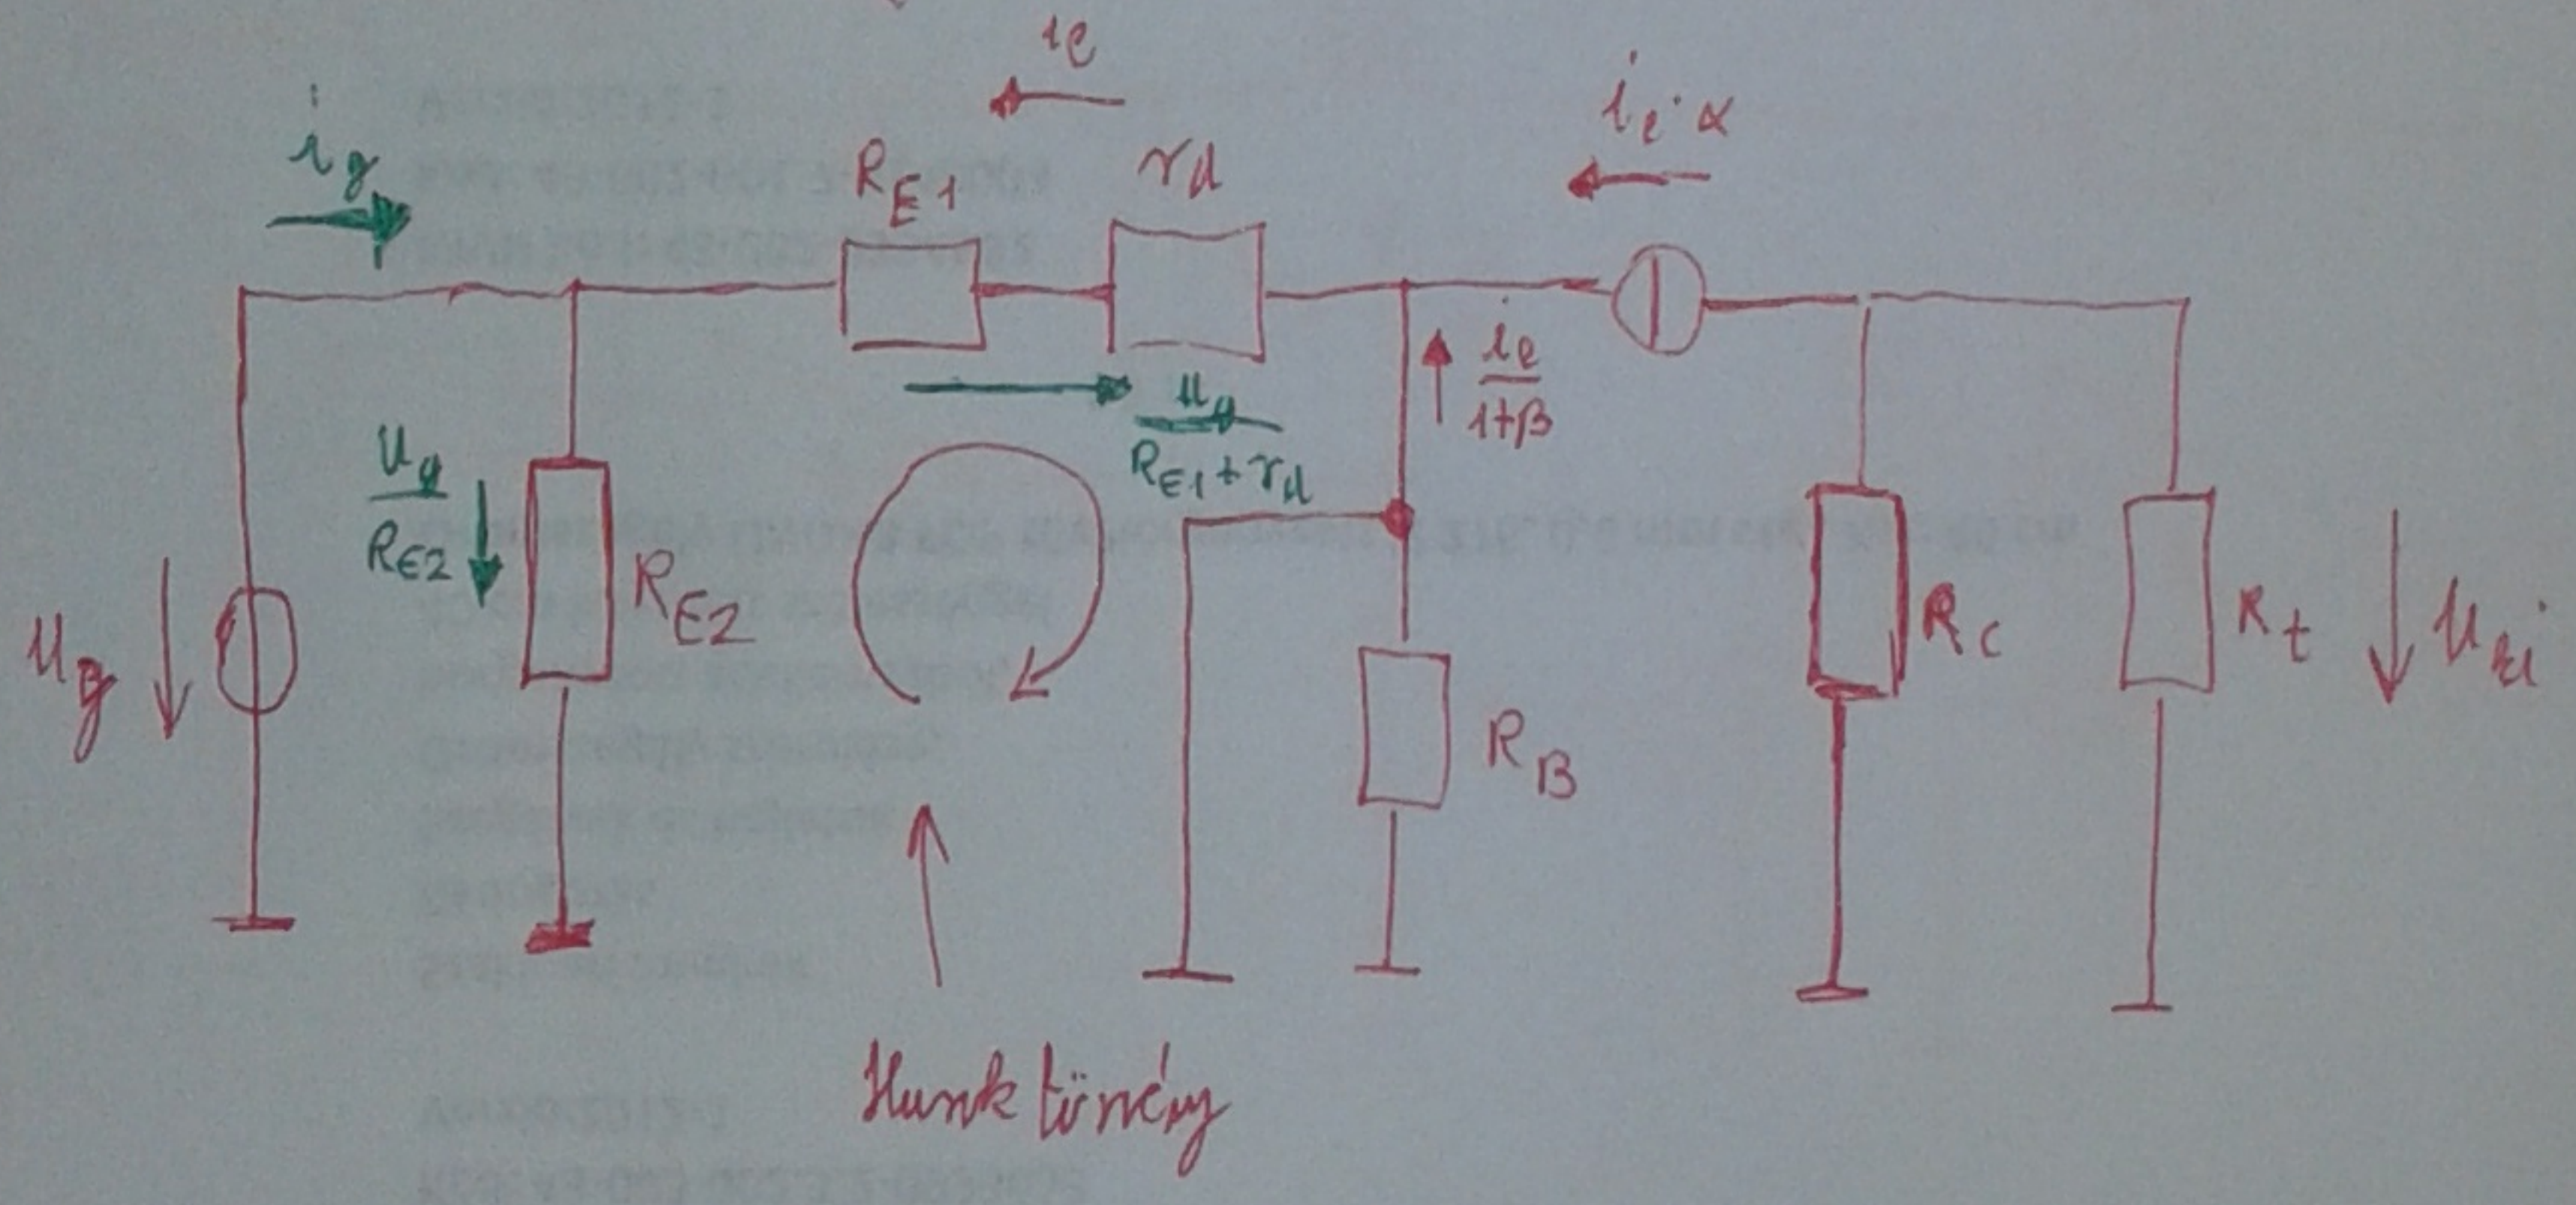 ie
ie·α
ig
RE1
rd
ie
1+β
ug
RE1+rd
ug
RE2
RE2
ug
RB
RC
Rt
uki
Hurok törvény